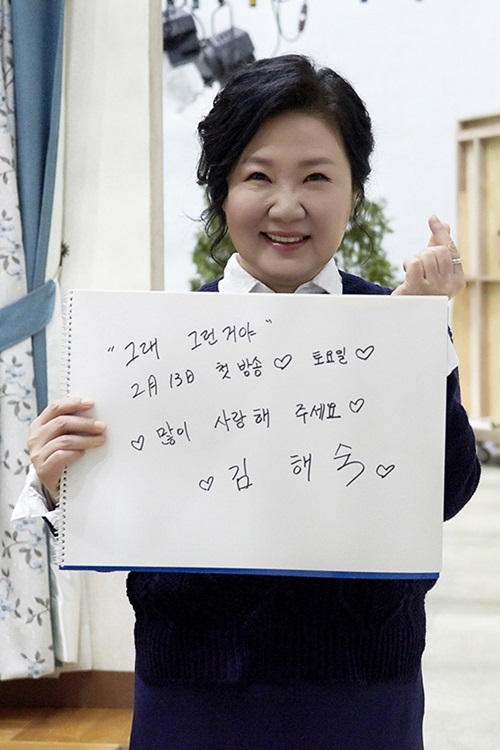 "그래 그런거야"
2月 13日 첫 방송 ♡ 토요일 ♡
♡ 많이 사랑해 주세요 ♡
♡ 김 해 숙 ♡